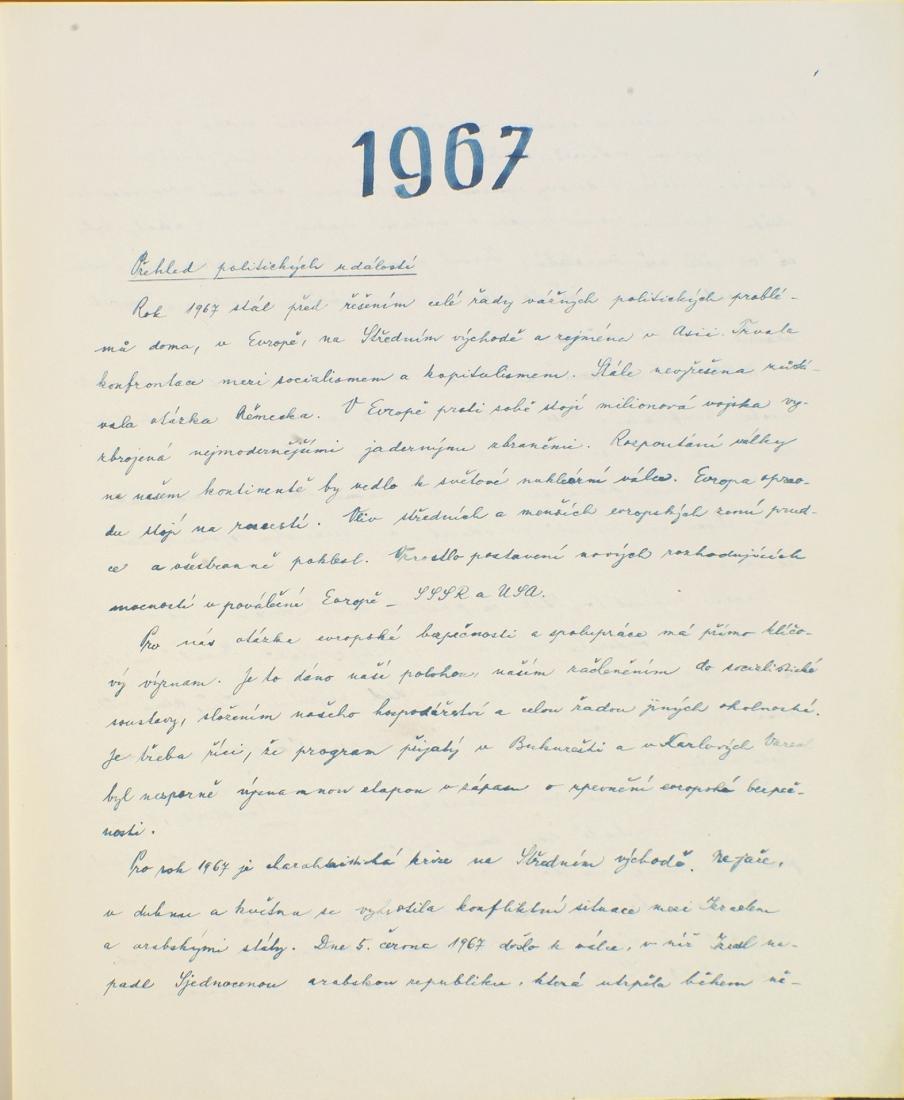 1967
Přehled politických událostí
Rok 1967 stál před řešením celé řady vážných politických problé-
mů doma, v Evropě, na Středním východě a zejména v Asii. Trvala
konfrontace mezi socialismem a kapitalismem. Stále nevyřešena zůstá-
vala otázka Německa. V Evropě proti sobě stojí milionová vojska vy-
zbrojená nejmodernějšími jadernými zbraněmi. Rozpoutání války
na našem kontinentě by vedlo k světové nukleární válce. Evropa oprav-
du stojí na rozcestí. Vliv středních a menších evropských zemí prud-
ce a všestranně poklesl. Vzrostlo postavení nových rozhodujících
mocností v poválečné Evropě – SSSR a USA.
Pro nás otázka evropské bezpečnosti a spolupráce má přímo klíčo-
vý význam. Je to dáno naší polohou, naším začleněním do socialistické
soustavy, složením našeho hospodářství a celou řadou jiných okolností.
Je třeba říci, že program přijatý v Bukurešti a v Karlových Varech
byl nesporně významnou etapou v zápasu o zpevnění evropské bezpeč-
nosti.
Pro rok 1967 je charakteristická krize na Středním východě. Na jaře,
v dubnu a květnu se vyhrotila konfliktní situace mezi Izraelem
a arabskými státy. Dne 5. června 1967 došlo k válce, v níž Izrael na-
padl Sjednocenou arabskou republiku, která utrpěla během ně-